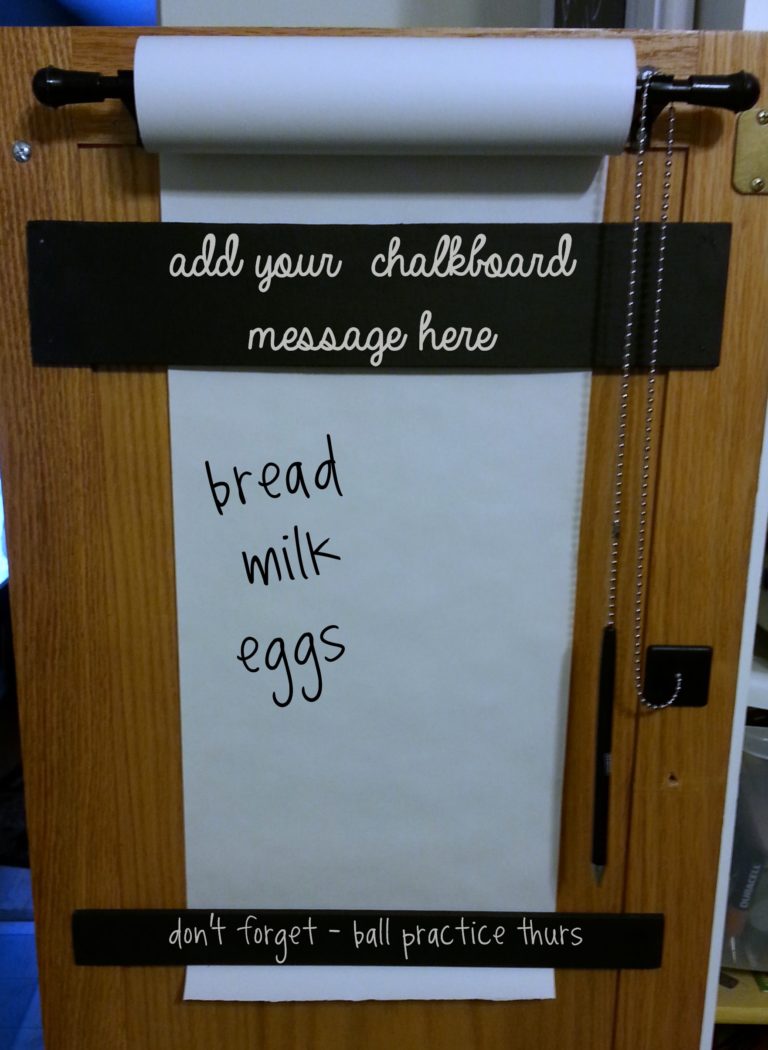 add your chalkboard
message here
bread
milk
eggs
don't forget - ball practice thurs
DURACELL